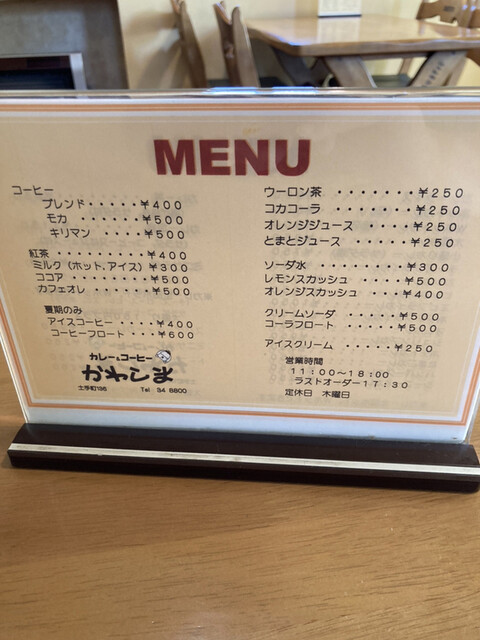 MENU
コーヒー
ブレンド・・・・・¥400
モカ ・・・・・・¥500
キリマン ・・・・¥500
紅茶 ・・・・・・・・¥400
ミルク(ホット,アイス)¥300
ココア ・・・・・・・¥500
カフェオレ ・・・・・¥500
夏期のみ
アイスコーヒー ・・・・¥400
コーヒーフロート ・・・¥600
カレーとコーヒー
かわしま
土手町196 Tel 34 6800
ウーロン茶 ・・・・・・・¥250
コカコーラ ・・・・・・・¥250
オレンジジュース ・・・・・¥250
とまとジュース ・・・・・¥250
ソーダ水 ・・・・・・・¥300
レモンスカッシュ ・・・・¥500
オレンジスカッシュ ・・・¥400
クリームソーダ ・・・・・¥500
コーラフロート ・・・・・¥500
アイスクリーム ・・・・・¥250
営業時間
11:00~18:00
ラストオーダー17:30
定休日 木曜日